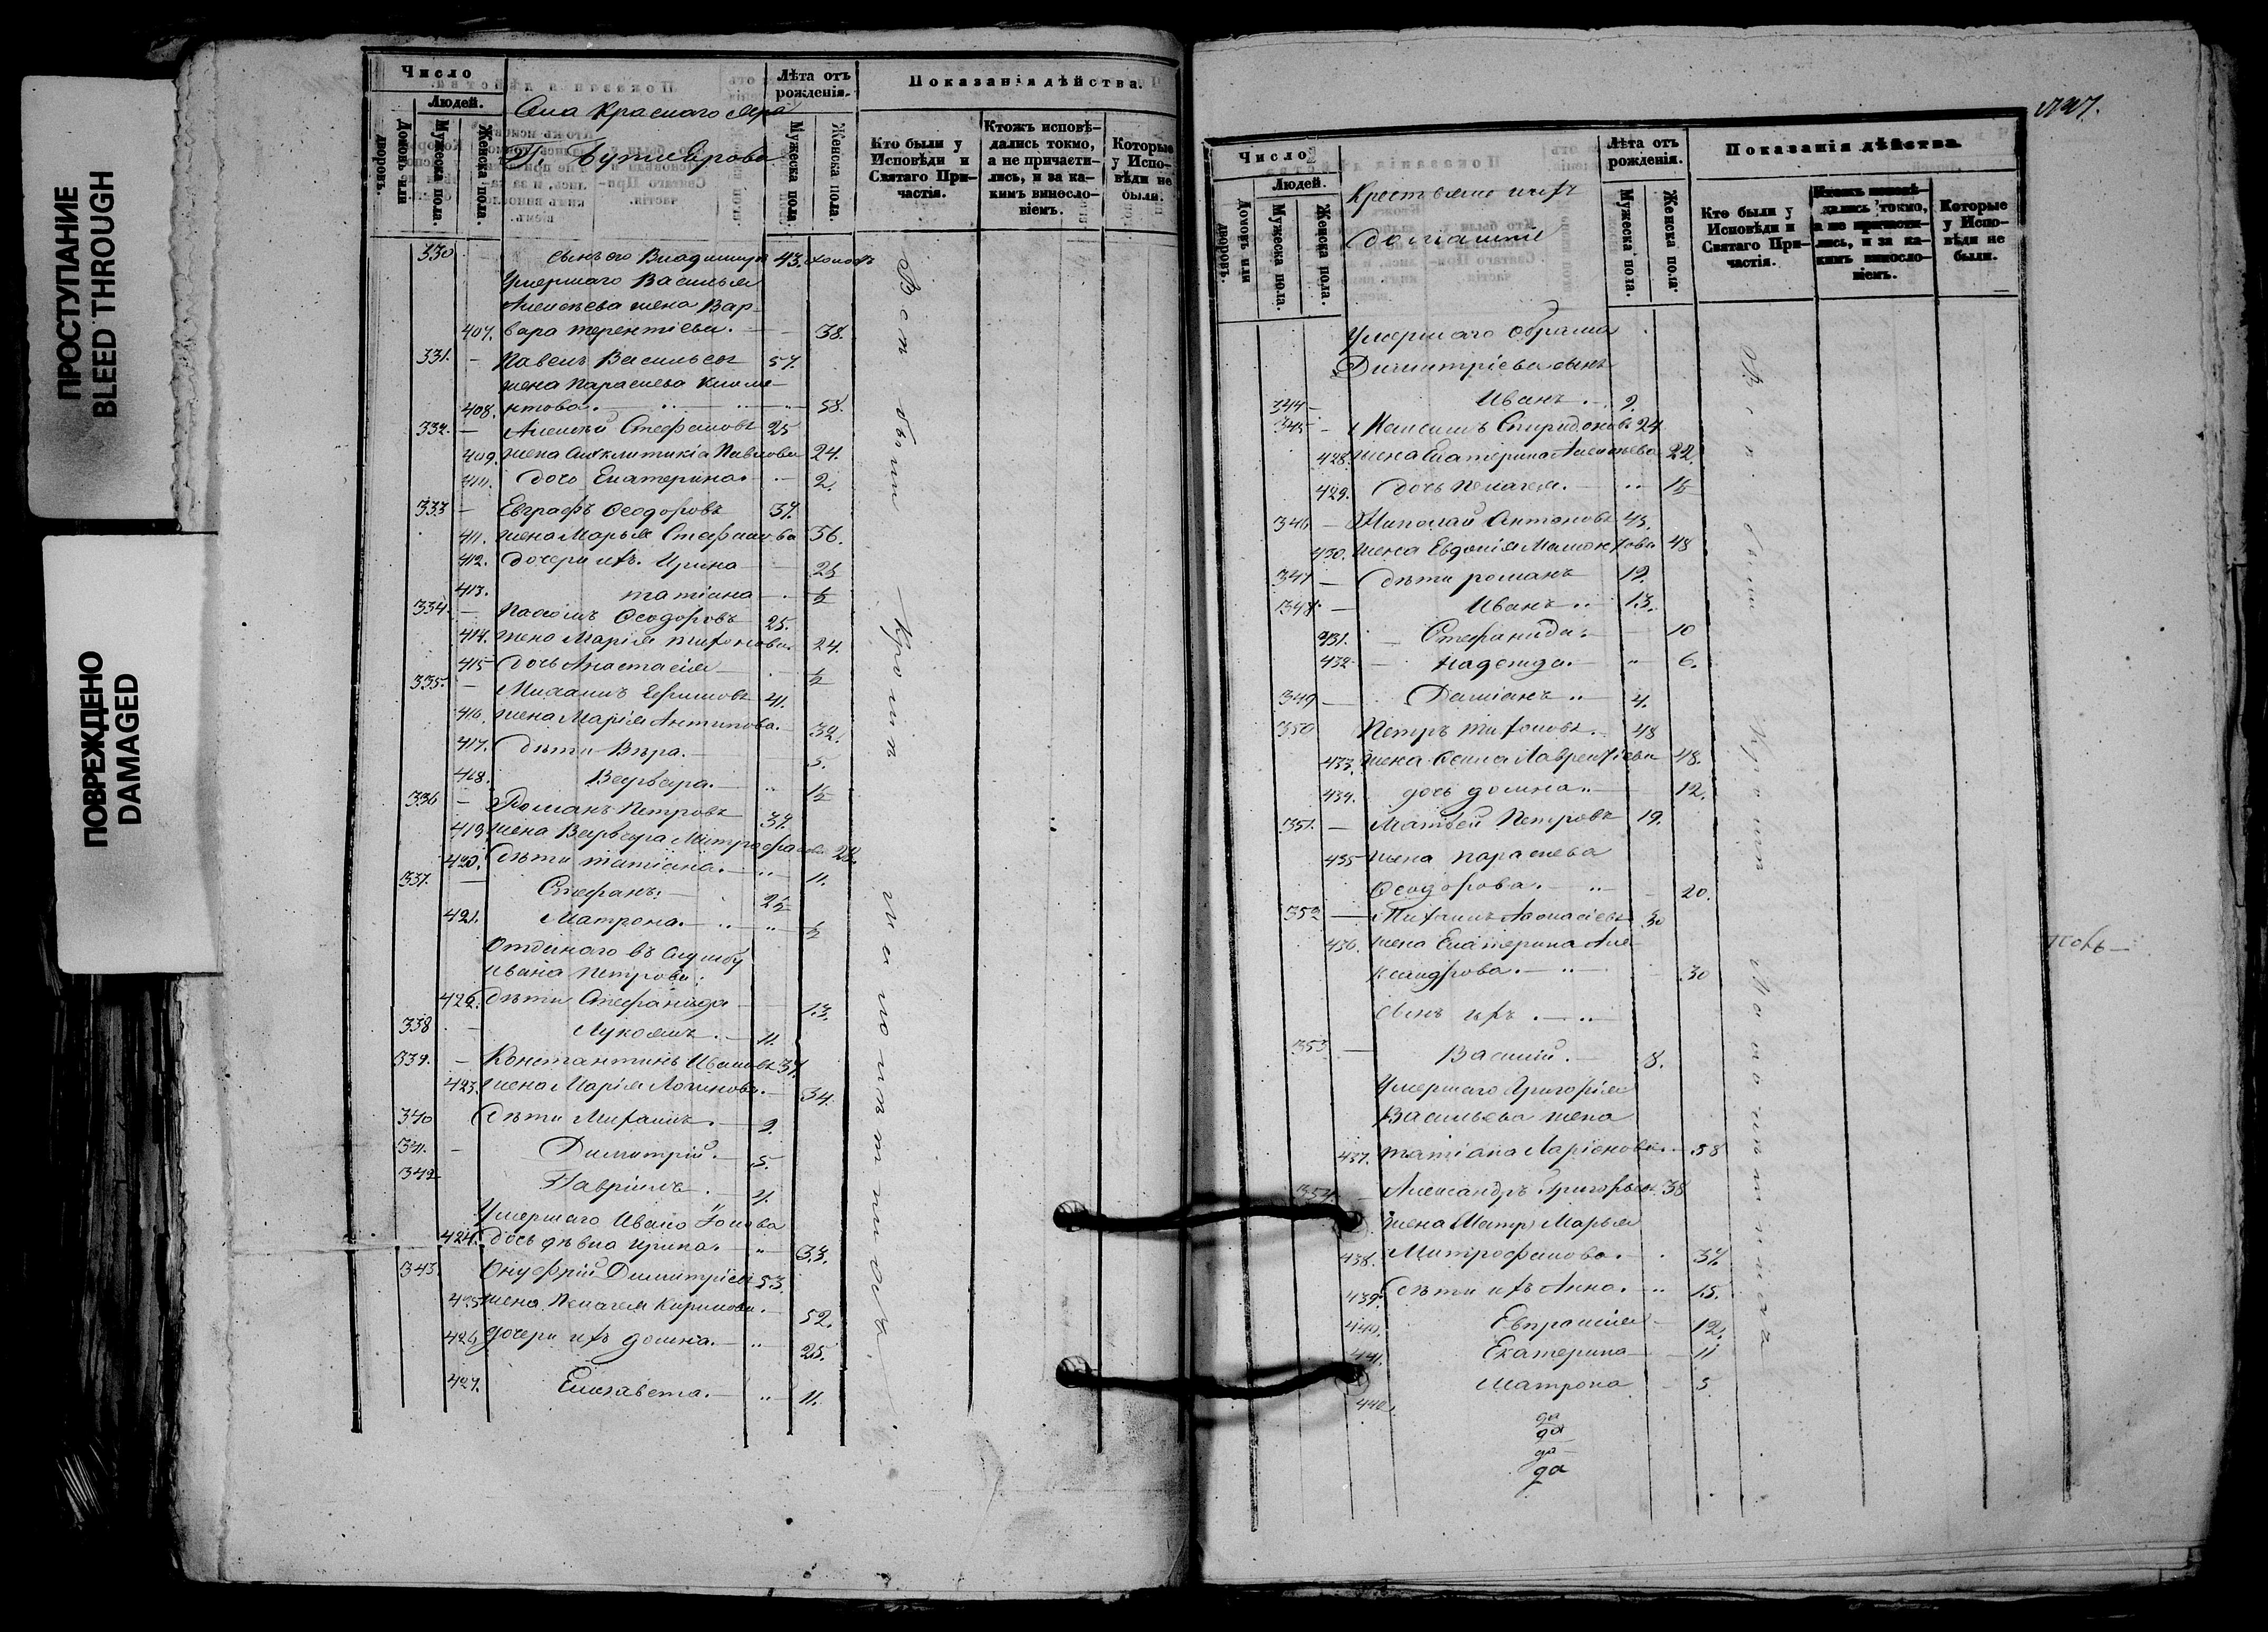 ПРОСТУПАНИЕ
BLEED THROUGH
ПОВРЕЖДЕНО
DAMAGED
Число
Людей.
Домовъ или дворовъ.
Мужеска пола.
Женска пола.
Села Краснаго Яра
Г. Бутлерова
Лѣта отъ рожденія.
Мужеска пола.
Женска пола.
Показанія дѣйства.
Кто были у Исповѣди и Святаго Причастія.
Ктожъ исповѣдались токмо, а не причастились, и за какимъ винословіемъ.
Которые у Исповѣди не были.
330 сынъ его Владимиръ 43. холостъ
Умершаго Василья
Алексѣева жена Вар-
407. вара Терентіева. — 38.
331. — Павелъ Васильевъ 57.
жена Параскева Климе-
408. нтова. — 58.
332. — Алексѣй Стефановъ 25
409. жена Сигклитикіа Павлова 24.
410. дочь Екатерина. — 2.
333 — Евграфъ Ѳеодоровъ 57.
411. жена Марья Стефанова 56.
412. дочери ихъ Ирина — 25
413. Татіана — ½
334. — Пахомъ Ѳеодоровъ 25.
414. жена Марія Тихонова. 24.
415 дочь Анастасія — ½
335. — Михаилъ Ефимовъ 41.
416. жена Марія Антипова. — 32.
417. дѣти Вѣра. — 5.
418. Варвара. — 1½
336 — Романъ Петровъ 39.
419. жена Варвара Митрофанова 28.
420. дѣти Татіана. — 11.
337. — Стефанъ. — 2½
421. Матрона. — ½
Отданаго въ службу
Ивана Петрова:
422. дѣти Стефанида — 13.
338 — Лукоянъ. — 11.
339. — Константинъ Ивановъ 37.
423. жена Марія Логинова. — 34.
340 Дѣти Михаилъ. — 9.
341. — Димитрій. — 5.
342 Гавріилъ. — 4.
Умершаго Ивана Іонова
424. дочь дѣвка Ирина. — 33.
343. Онуфрій Димитріевъ 53.
425 жена Пелагея Кирилова. — 52.
426 дочери ихъ Домна. — 25.
427. Елисавета. — 11.
Всѣ были
Кромѣ малолѣтнихъ
Число
Людей.
Домовъ или дворовъ.
Мужеска пола.
Женска пола.
Крестьяне ихъ
домашніе
Лѣта отъ рожденія.
Мужеска пола.
Женска пола.
Показанія дѣйства.
Кто были у Исповѣди и Святаго Причастія.
Ктожъ исповѣдались токмо, а не причастились, и за какимъ винословіемъ.
Которые у Исповѣди не были.
Умершаго Ефрима
Димитріева сынъ
344 — Иванъ. — 9.
345 — Максимъ Спиридоновъ 24
428. жена Екатерина Алексѣева 22.
429. дочь Пелагея. — 1½
346 — Николай Антоновъ 43.
430. жена Евдокія Мамонтова 48
347 — дѣти Романъ 19.
348. — Иванъ 13.
431. — Стефанида. — 10
432 — Надежда. — 6.
349 — Даміанъ — 4.
350 Петръ Тихоновъ. — 48
433. жена Ксенія Лаврентіева 48.
434. дочь Домна — 12.
351. — Матвей Петровъ 19.
435 жена Параскева
Ѳеодорова. — 20.
352 — Михаилъ Аѳонасіевъ 30
436. жена Екатерина Але-
ксандрова. — 30
сынъ ихъ. —
353 — Василій. — 8.
Умершаго Григорія
Васильева жена
437. Татіана Ларіонова. — 58
354. — Александръ Григорьевъ 38
жена (Матр) Марья
438. Митрофанова. — 37.
439. дѣти ихъ Анна. — 15.
440. Евпраксія — 12.
441. Екатерина — 11
442. Матрона — 5
да
да
да
да
Всѣ были
Кромѣ малолѣтнихъ